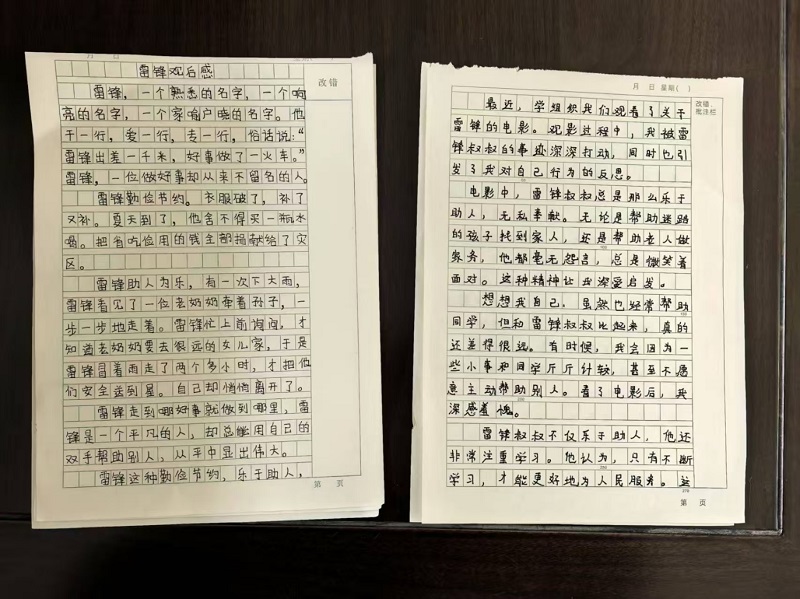 雷锋观后感
雷锋，一个熟悉的名字，一个响
亮的名字，一个家喻户晓的名字。他
干一行，爱一行，专一行，俗话说：“
雷锋出差一千米，好事做了一火车。”
雷锋，一位做好事却从来不留名的人。
雷锋勤俭节约。衣服破了，补了
又补。夏天到了，他舍不得买一瓶水
喝。把省吃俭用的钱全部捐献给了灾
区。
雷锋助人为乐，有一次下大雨，
雷锋看见了一位老奶奶牵着孙子，一
步一步地走着。雷锋忙上前询问，才
知道老奶奶要去很远的女儿家，于是
雷锋冒着雨走了两个多小时，才把他
们安全送到屋。自己却悄悄离开了。
雷锋走到哪好事就做到哪里，雷
锋是一个平凡的人，却总能用自己的
双手帮助别人，从平中显出伟大。
雷锋这种勤俭节约，乐于助人，
改错
第 页
月 日 星期( )
最近，学组织我们观看了关于
雷锋的电影。观影过程中，我被雷
锋叔叔的事迹深深打动，同时也引
发了我对自己行为的反思。
电影中，雷锋叔叔总是那么乐于
助人，无私奉献。无论是帮助迷路
的孩子找到家人，还是帮助老人做
家务，他都毫无怨言，总是微笑着
面对。这种精神让我深受启发。
想想我自己，虽然也经常帮助
同学，但和雷锋叔叔比起来，真的
还差得很远。有时候，我会因为一
些小事和同学斤斤计较，甚至不愿
意主动帮助别人。看了电影后，我
深感羞愧。
雷锋叔叔不仅乐于助人，他还
非常注重学习。他认为，只有不断
学习，才能更好地为人民服务。这
改错、
批注栏
第 页